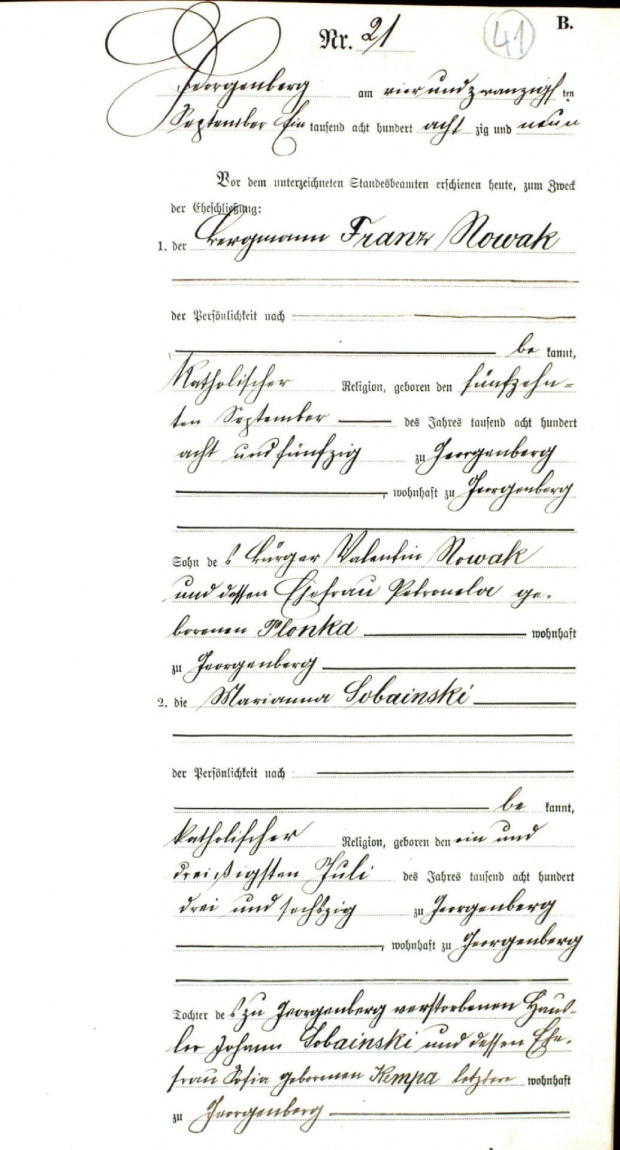 B.
Nr. 21
41
Georgenberg am vier und zwanzigsten
September Ein tausend acht hundert acht zig und neun
Vor dem unterzeichneten Standesbeamten erschienen heute, zum Zweck
der Eheschließung:
1. der Bergmann Franz Nowak
der Persönlichkeit nach
be kannt,
katholischer Religion, geboren den fünfzehn-
ten September des Jahres tausend acht hundert
acht und fünfzig zu Georgenberg
, wohnhaft zu Georgenberg
Sohn des Bürger Valentin Nowak
und dessen Ehefrau Petronela ge-
borenen Plonka wohnhaft
zu Georgenberg
2. die Marianna Sobainski
der Persönlichkeit nach
be kannt,
katholischer Religion, geboren den ein und
dreißigsten Juli des Jahres tausend acht hundert
drei und sechszig zu Georgenberg
, wohnhaft zu Georgenberg
Tochter des zu Georgenberg verstorbenen Häus-
ler Johann Sobainski und dessen Ehe-
frau Sofia geborenen Kempa letztere wohnhaft
zu Georgenberg